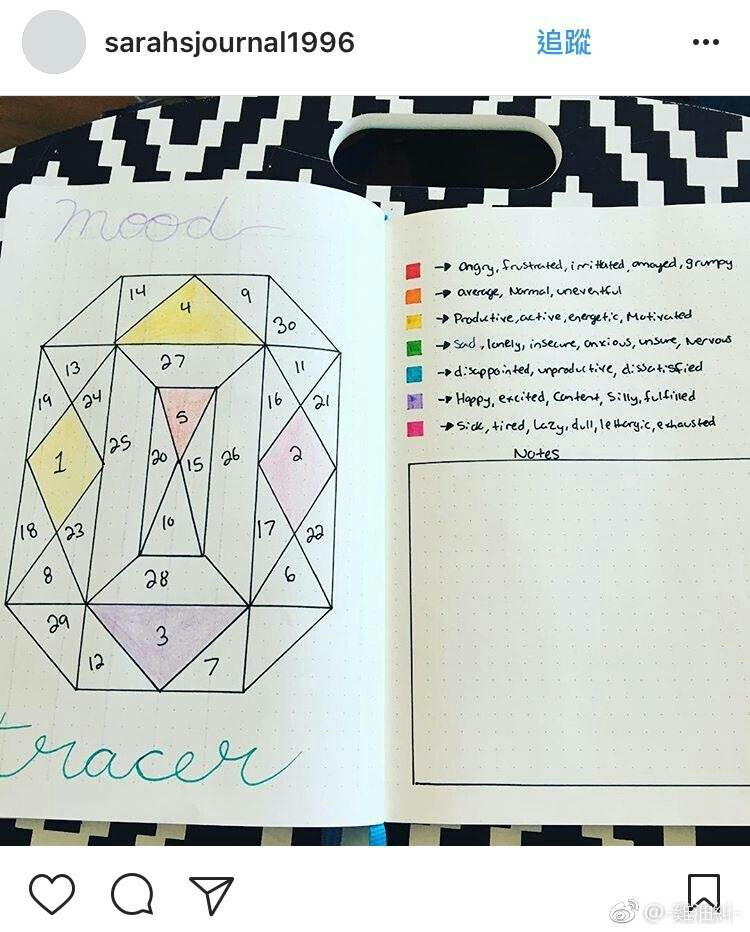 sarahsjournal1996
追蹤
mood
14
4
9
30
27
13
11
19
24
16
21
5
25
20
15
26
1
2
10
18
23
17
22
8
28
6
29
3
12
7
tracer
Angry, frustrated, irritated, annoyed, grumpy
average, Normal, uneventful
Productive, active, energetic, Motivated
Sad, lonely, insecure, anxious, unsure, Nervous
disappointed, unproductive, dissatisfied
Happy, excited, Content, Silly, fulfilled
Sick, tired, Lazy, dull, lethargic, exhausted
Notes
@-雞油糾-